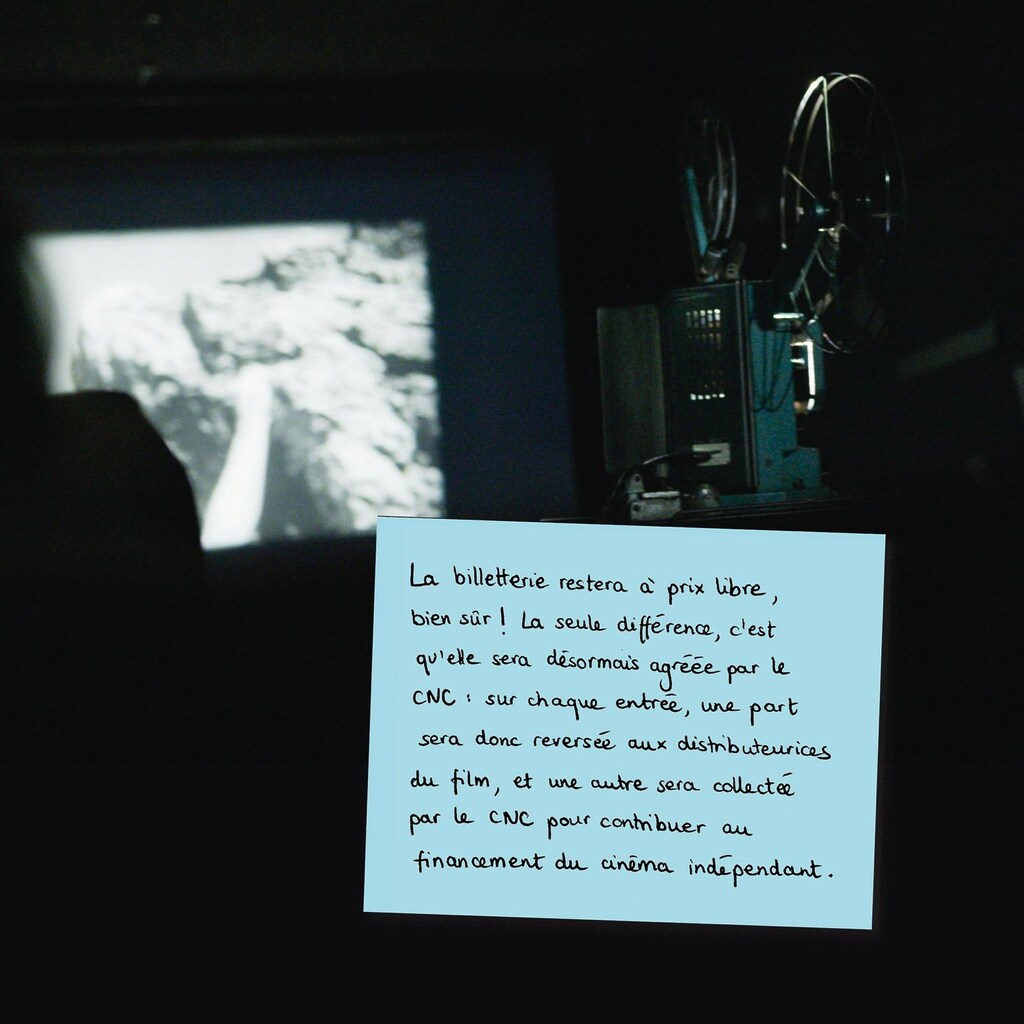 La billetterie restera à prix libre,
bien sûr ! La seule différence, c'est
qu'elle sera désormais agréée par le
CNC : sur chaque entrée, une part
sera donc reversée aux distributeurices
du film, et une autre sera collectée
par le CNC pour contribuer au
financement du cinéma indépendant.